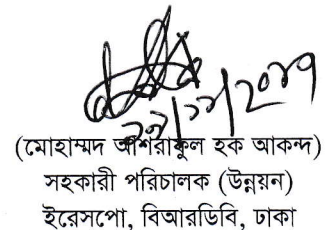 (মোহাম্মদ আশরাকুল হক আকন্দ)
সহকারী পরিচালক (উন্নয়ন)
ইরেসপো, বিআরডিবি, ঢাকা